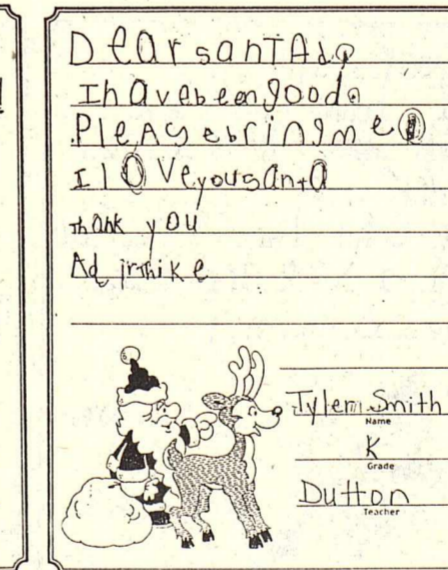 Dear santA
I have been good.
Please bring me
I love you santa
Thank you
Tylem Smith
Name
K
Grade
Dutton
Teacher